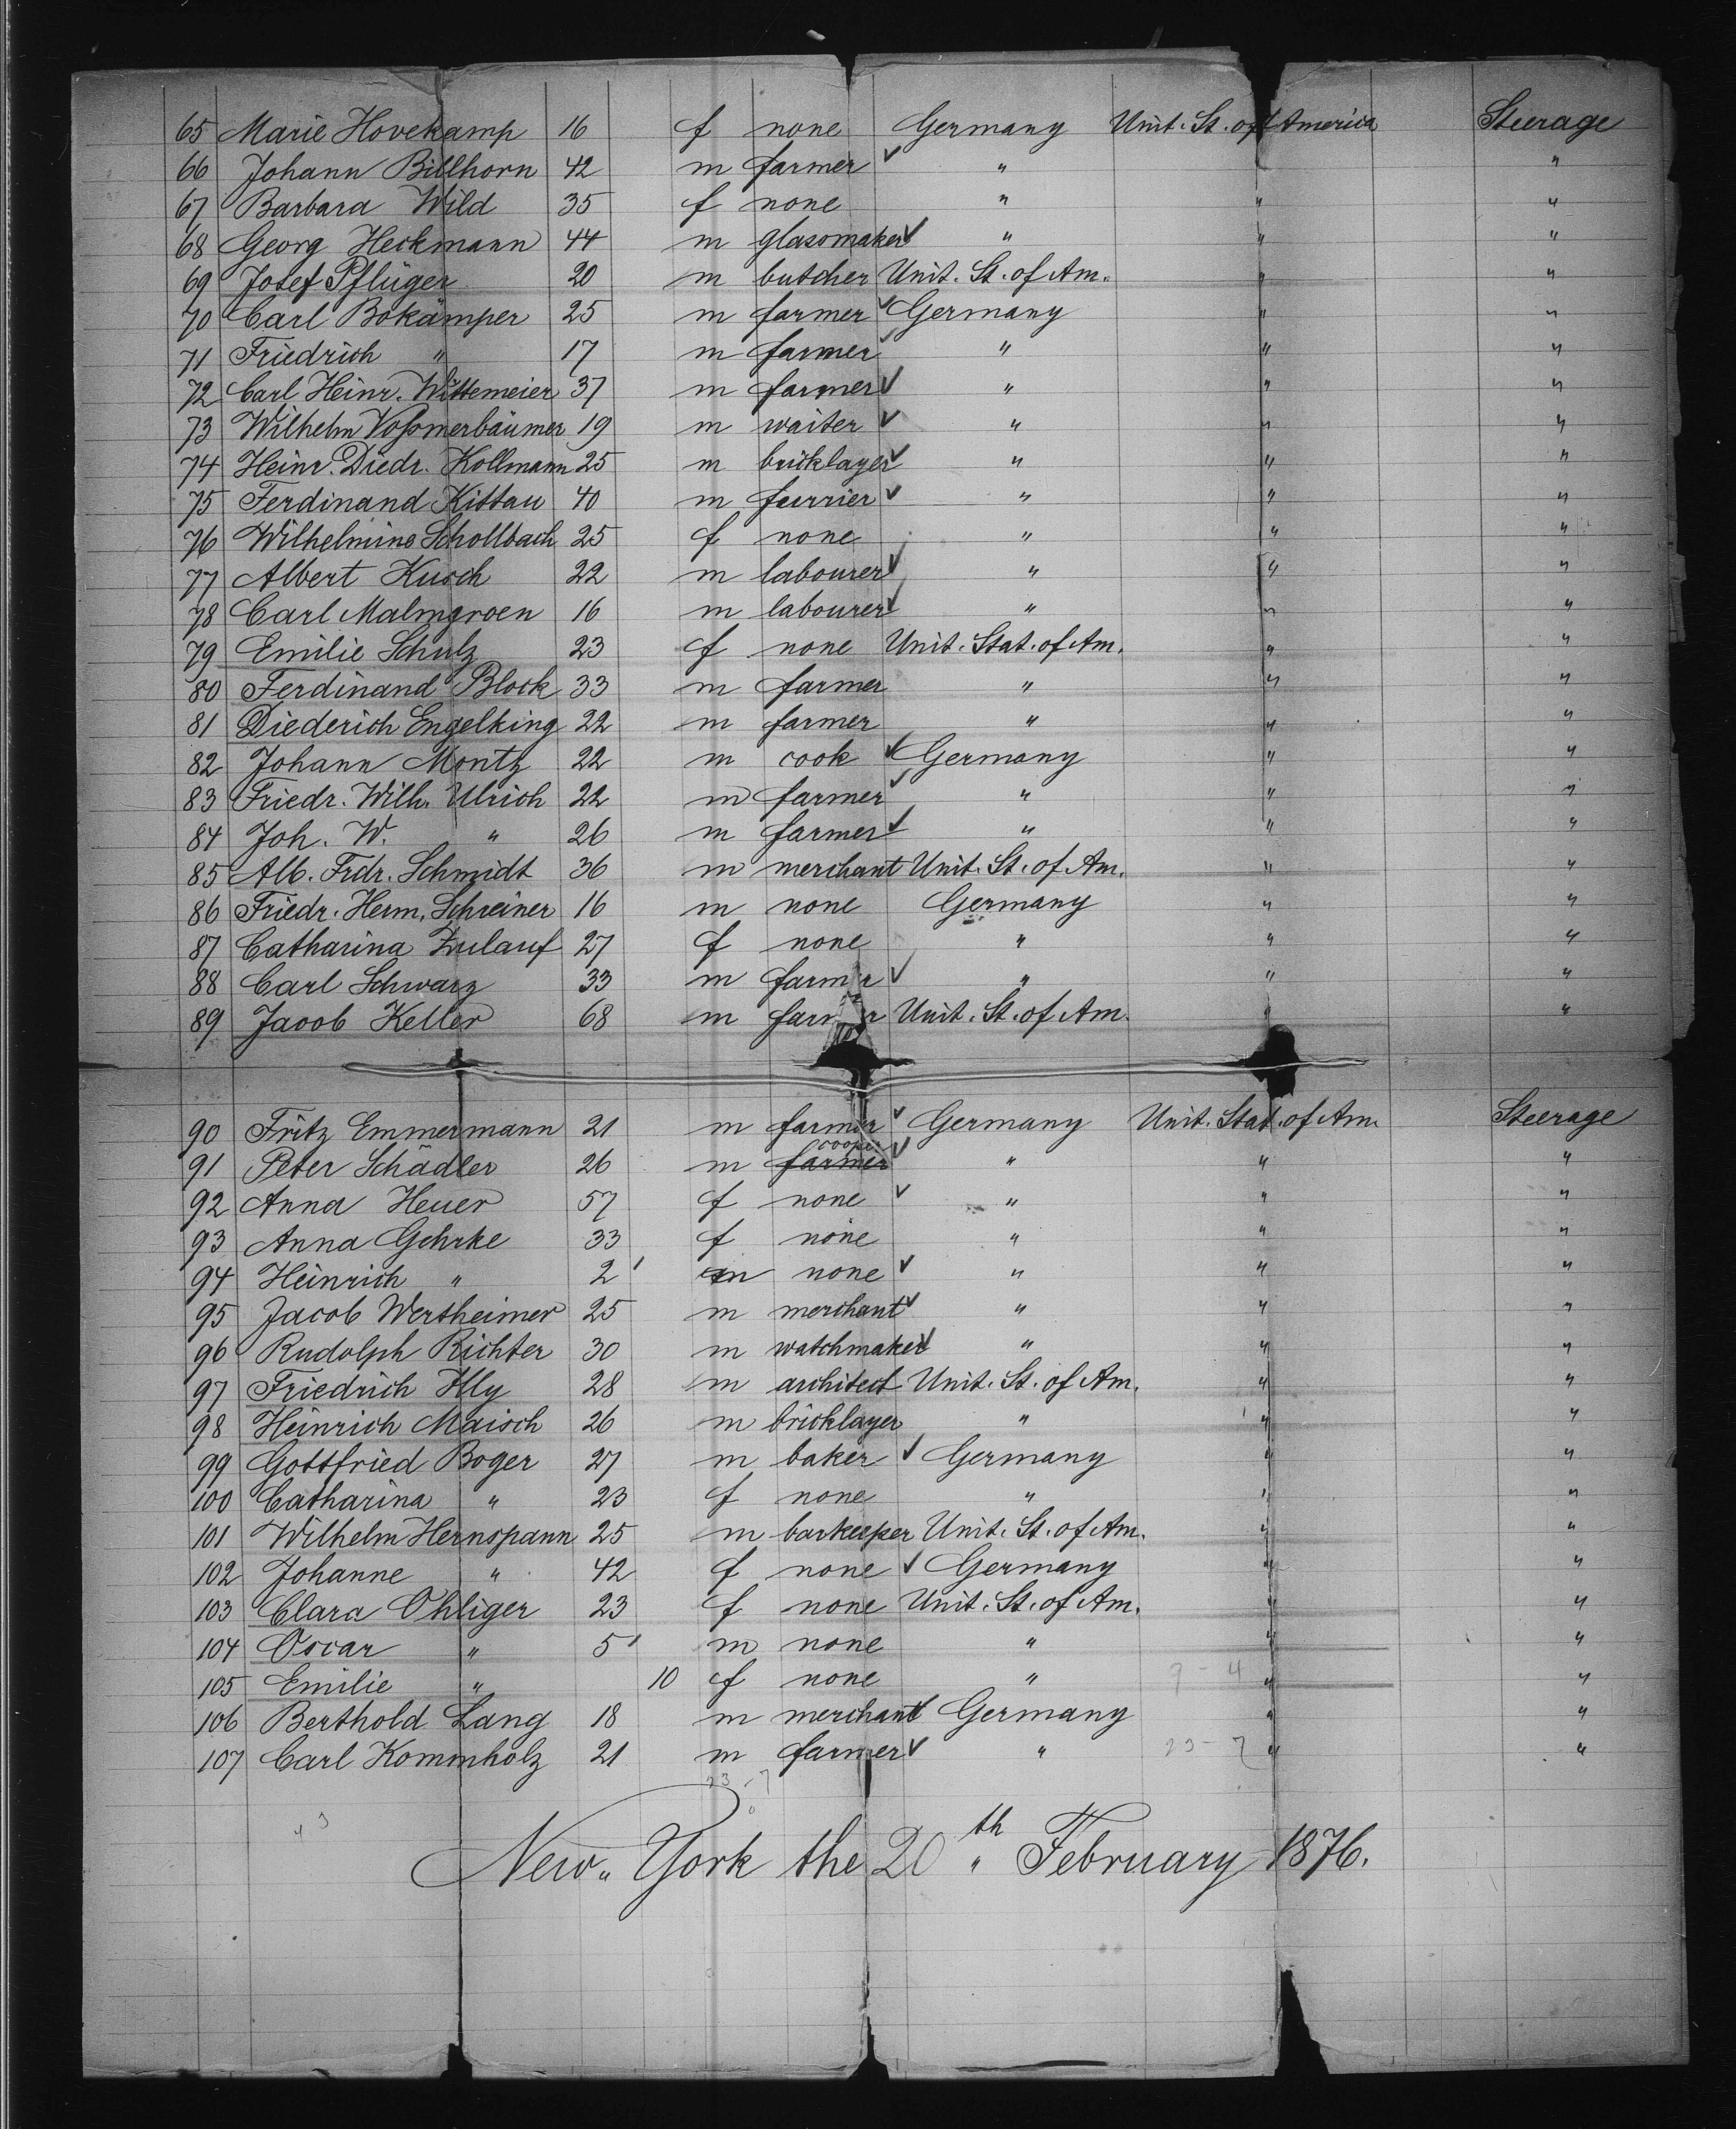 65 Marie Hovekamp 16 f none Germany Unit. St. of America Steerage
66 Johann Billhorn 42 m farmer " "
67 Barbara Wild 35 f none " " "
68 Georg Heckmann 44 m glassmaker " " "
69 Josef Pflüger 20 m butcher Unit. St. of Am. " "
70 Carl Bökämper 25 m farmer Germany " "
71 Friedrich " 17 m farmer " " "
72 Carl Heinr. Wittemeier 37 m farmer " " "
73 Wilhelm Voßmerbäumer 19 m waiter " " "
74 Heinr. Diedr. Kollmann 25 m bricklayer " " "
75 Ferdinand Kittau 40 m furrier " " "
76 Wilhelmine Schollbach 25 f none " " "
77 Albert Kusch 22 m labourer " " "
78 Carl Malmgroen 16 m labourer " " "
79 Emilie Schulz 23 f none Unit. Stat. of Am. " "
80 Ferdinand Block 33 m farmer " " "
81 Diederich Engelking 22 m farmer " " "
82 Johann Montz 22 m cook Germany " "
83 Friedr. Wilh. Ulrich 22 m farmer " " "
84 Joh. W. " 26 m farmer " " "
85 Alb. Frdr. Schmidt 36 m merchant Unit. St. of Am. " "
86 Friedr. Herm. Schreiner 16 m none Germany " "
87 Catharina Zulauf 27 f none " " "
88 Carl Schwarz 33 m farmer " " "
89 Jacob Keller 68 m farmer Unit. St. of Am. " "
90 Fritz Emmermann 21 m farmer Germany Unit. Stat. of Am. Steerage
cooper
91 Peter Schädler 26 m farmer " " "
92 Anna Heuer 57 f none " " "
93 Anna Gehrke 33 f none " " "
94 Heinrich " 2 m none " " "
95 Jacob Wertheimer 25 m merchant " " "
96 Rudolph Richter 30 m watchmaker " " "
97 Friedrich Illy 28 m architect Unit. St. of Am. " "
98 Heinrich Maisch 26 m bricklayer " " "
99 Gottfried Boger 27 m baker Germany " "
100 Catharina " 23 f none " " "
101 Wilhelm Hernspann 25 m barkeeper Unit. St. of Am. " "
102 Johanne " 42 f none Germany " "
103 Clara Ohliger 23 f none Unit. St. of Am. " "
104 Oscar " 5 m none " " "
105 Emilie " 10 f none " 9-4 " "
106 Berthold Lang 18 m merchant Germany " "
107 Carl Kommholz 21 m farmer " 23-7 " "
23-7
43
New-York the 20th February 1876.